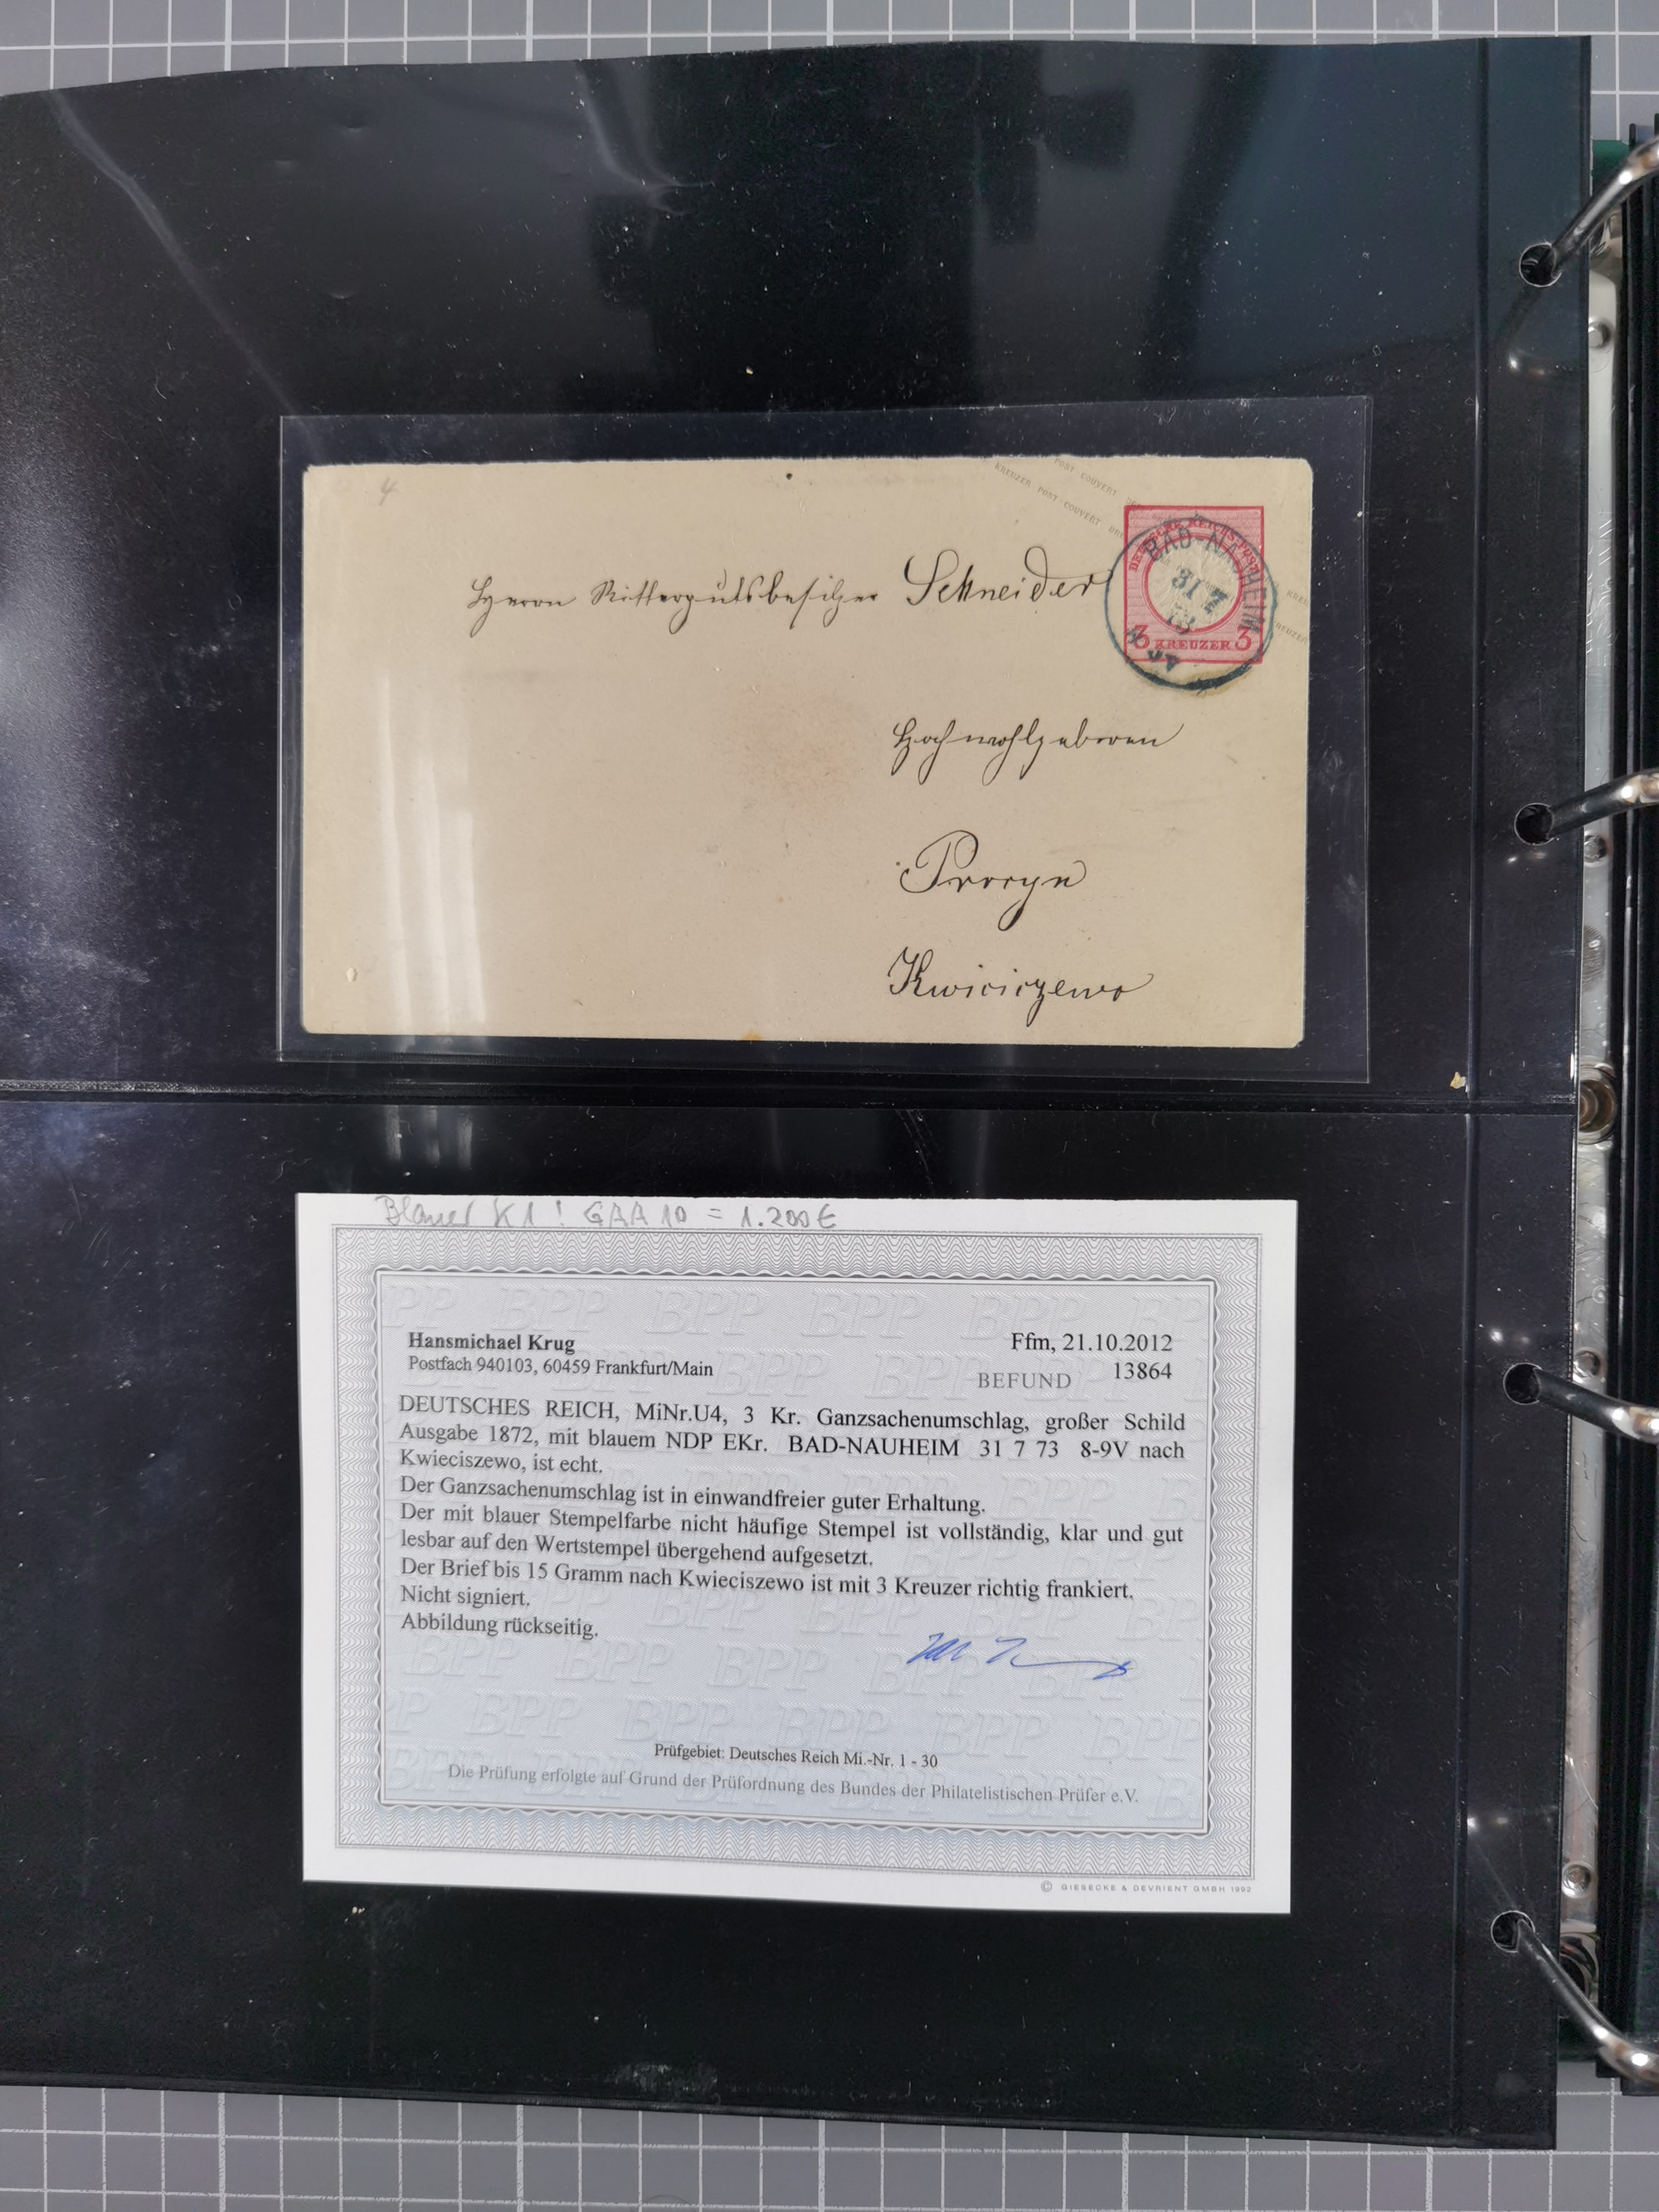 4
KREUZER POST-COUVERT
POST-COUVERT
DEUTSCHE REICHS-POST
BAD-NAUHEIM
31 7
73
3 KREUZER 3
Herrn Rittergutsbesitzer Schneider
Hochwohlgeboren
Kwieciszewo
Blauer K1 ! GAA 10 = 1.200 €
BPP BPP BPP BPP BPP BPP
Hansmichael Krug
Ffm, 21.10.2012
Postfach 940103, 60459 Frankfurt/Main
BEFUND 13864
DEUTSCHES REICH, MiNr.U4, 3 Kr. Ganzsachenumschlag, großer Schild
Ausgabe 1872, mit blauem NDP EKr. BAD-NAUHEIM 31 7 73 8-9V nach
Kwieciszewo, ist echt.
Der Ganzsachenumschlag ist in einwandfreier guter Erhaltung.
Der mit blauer Stempelfarbe nicht häufige Stempel ist vollständig, klar und gut
lesbar auf den Wertstempel übergehend aufgesetzt.
Der Brief bis 15 Gramm nach Kwieciszewo ist mit 3 Kreuzer richtig frankiert.
Nicht signiert.
Abbildung rückseitig.
Prüfgebiet: Deutsches Reich Mi.-Nr. 1 - 30
Die Prüfung erfolgte auf Grund der Prüfordnung des Bundes der Philatelistischen Prüfer e.V.
© GIESECKE & DEVRIENT GMBH 1992